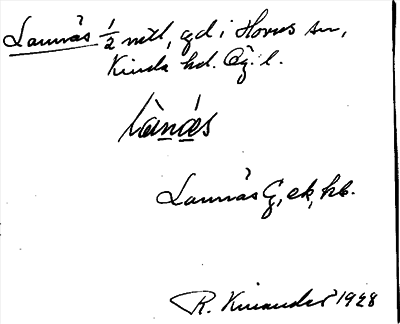 Lannäs 1/2 mtl, gd i Horns sn,
Kinda hd. Ög. l.
Lànás
Lannäs G, ek, hb.
R. Kinander 1928